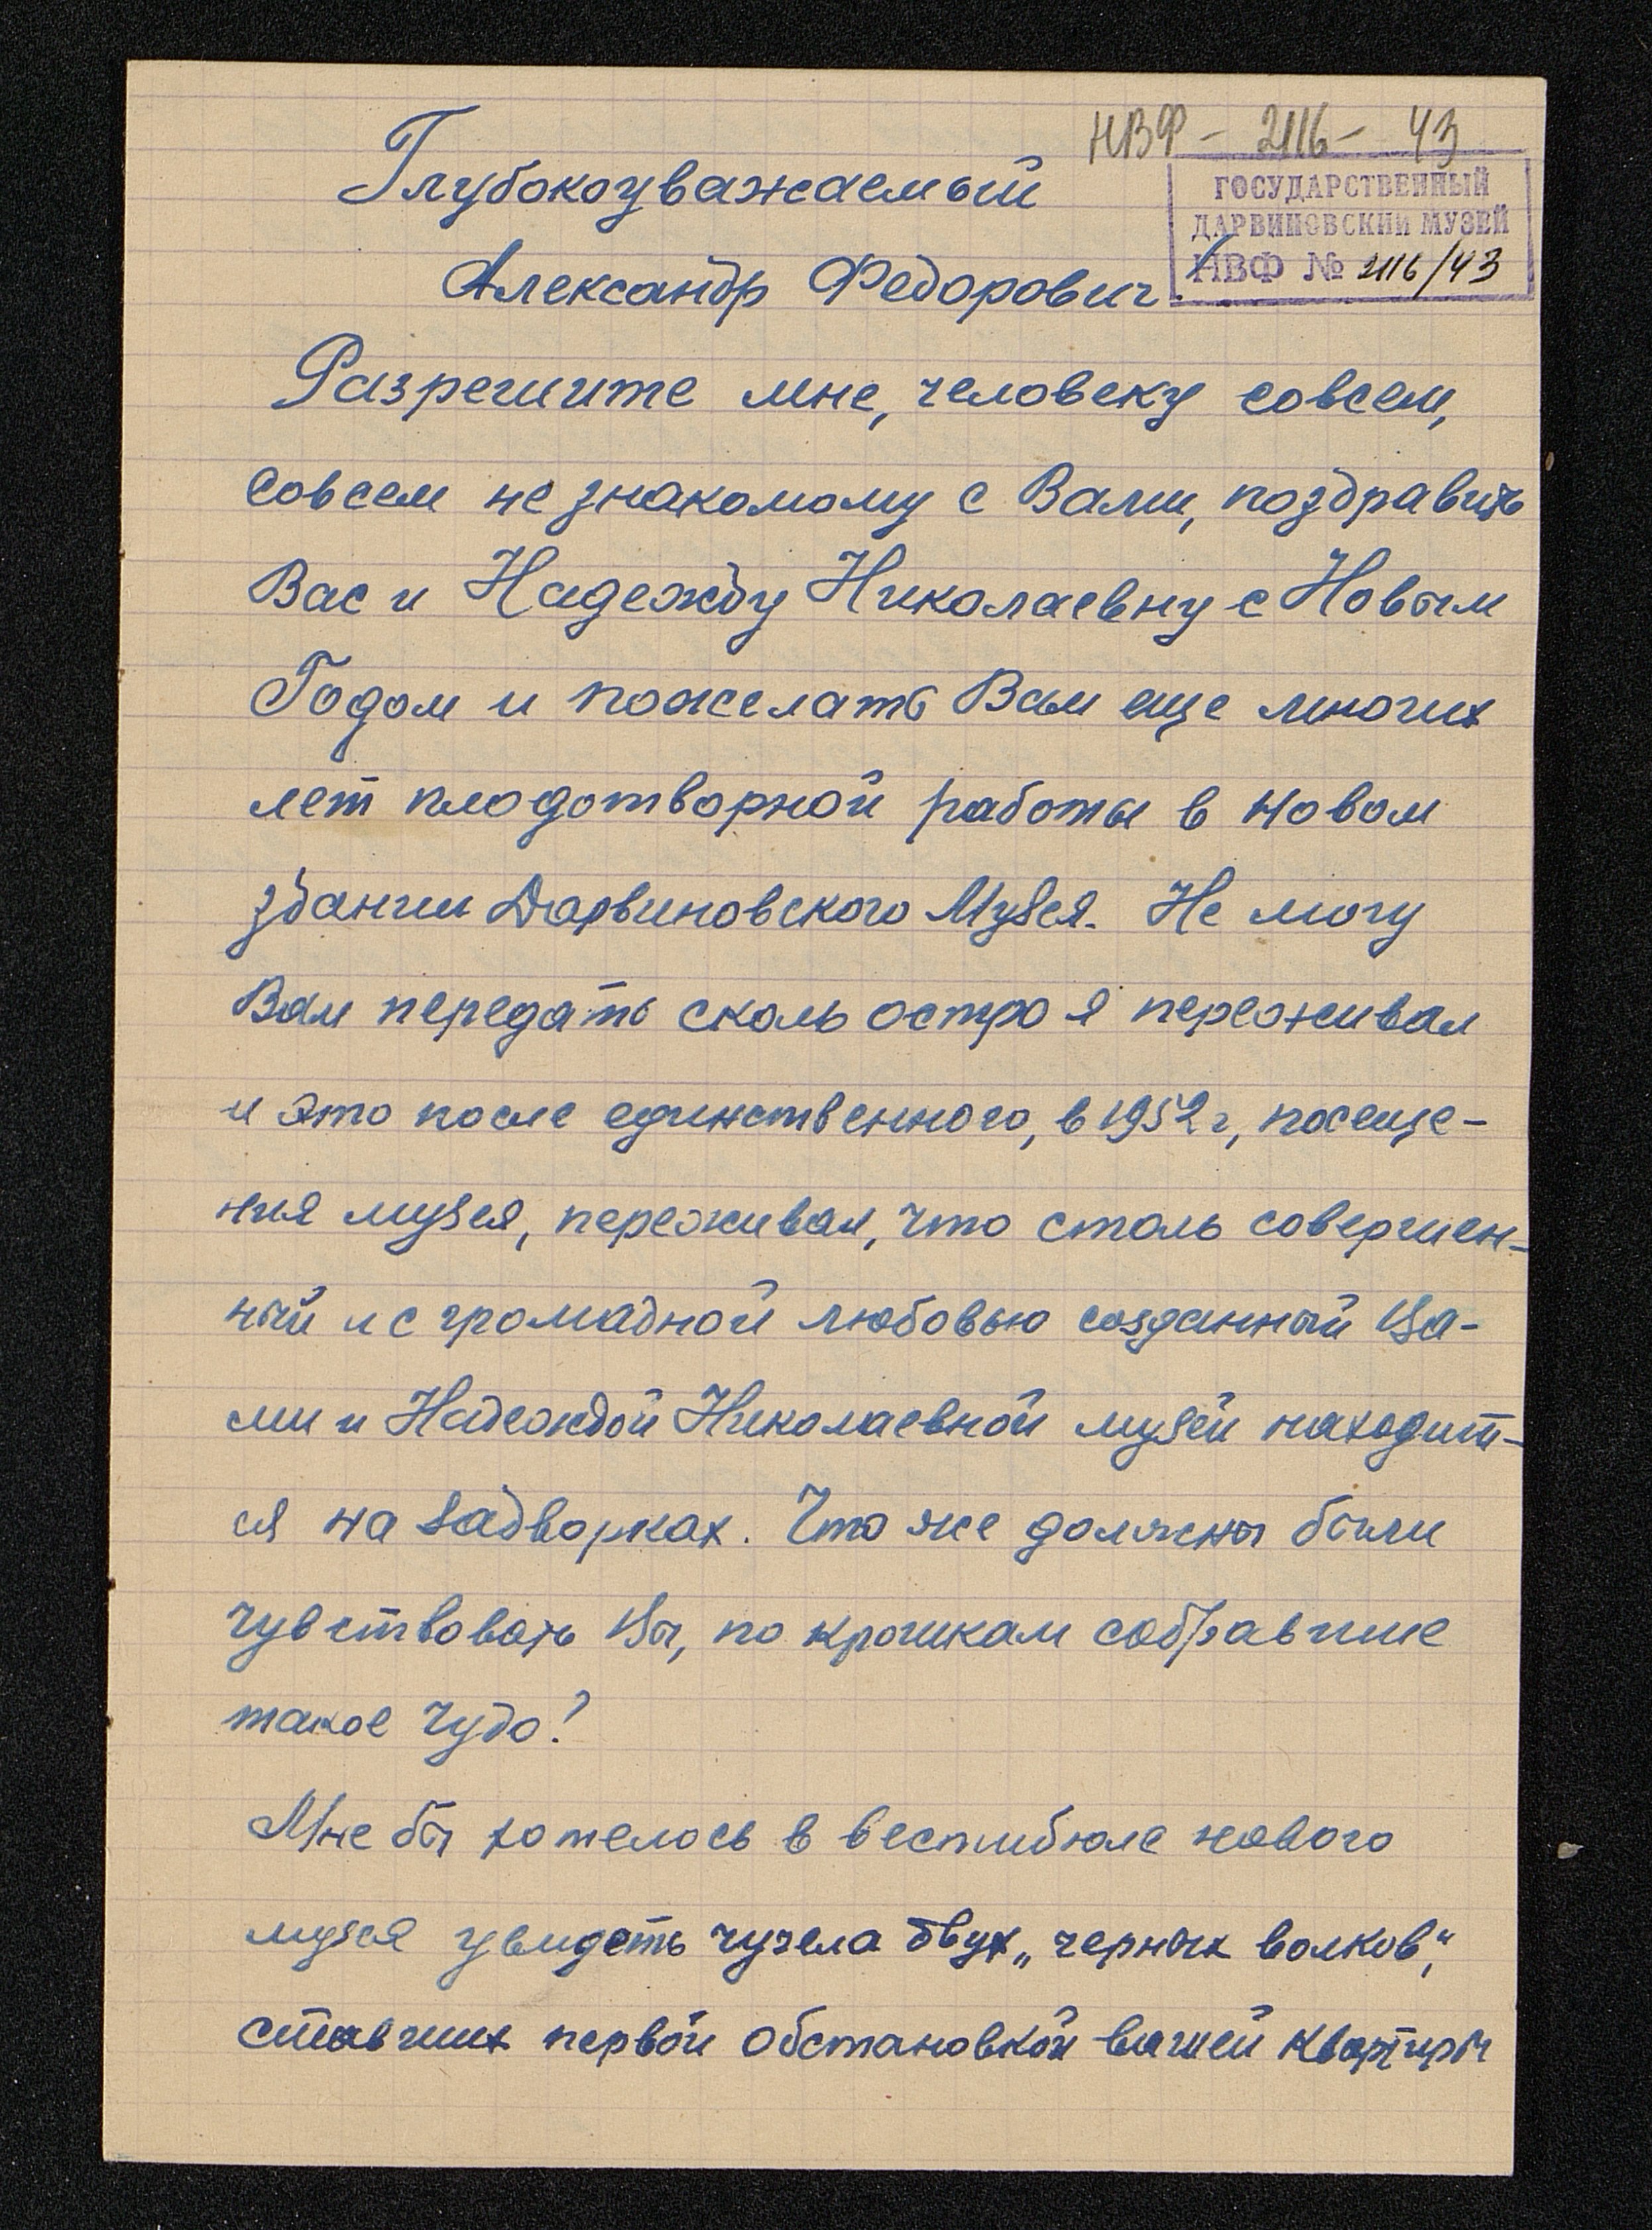 НВФ - 2116 - 43
ГОСУДАРСТВЕННЫЙ
ДАРВИНОВСКИЙ МУЗЕЙ
НВФ № 2116/43
Глубокоуважаемый
Александр Федорович!
Разрешите мне, человеку совсем,
совсем не знакомому с Вами, поздравить
Вас и Надежду Николаевну с Новым
Годом и пожелать Вам еще многих
лет плодотворной работы в новом
здании Дарвиновского Музея. Не могу
Вам передать сколь остро я переживал
и это после единственного, в 1952 г, посеще-
ния музея, переживал, что столь совершен-
ный и с громадной любовью созданный Ва-
ми и Надеждой Николаевной музей находит-
ся на задворках. Что же должны были
чувствовать Вы, по крошкам собравшие
такое чудо!
Мне бы хотелось в вестибюле нового
музея увидеть чучела двух „черных волков“,
ставших первой обстановкой вашей квартиры